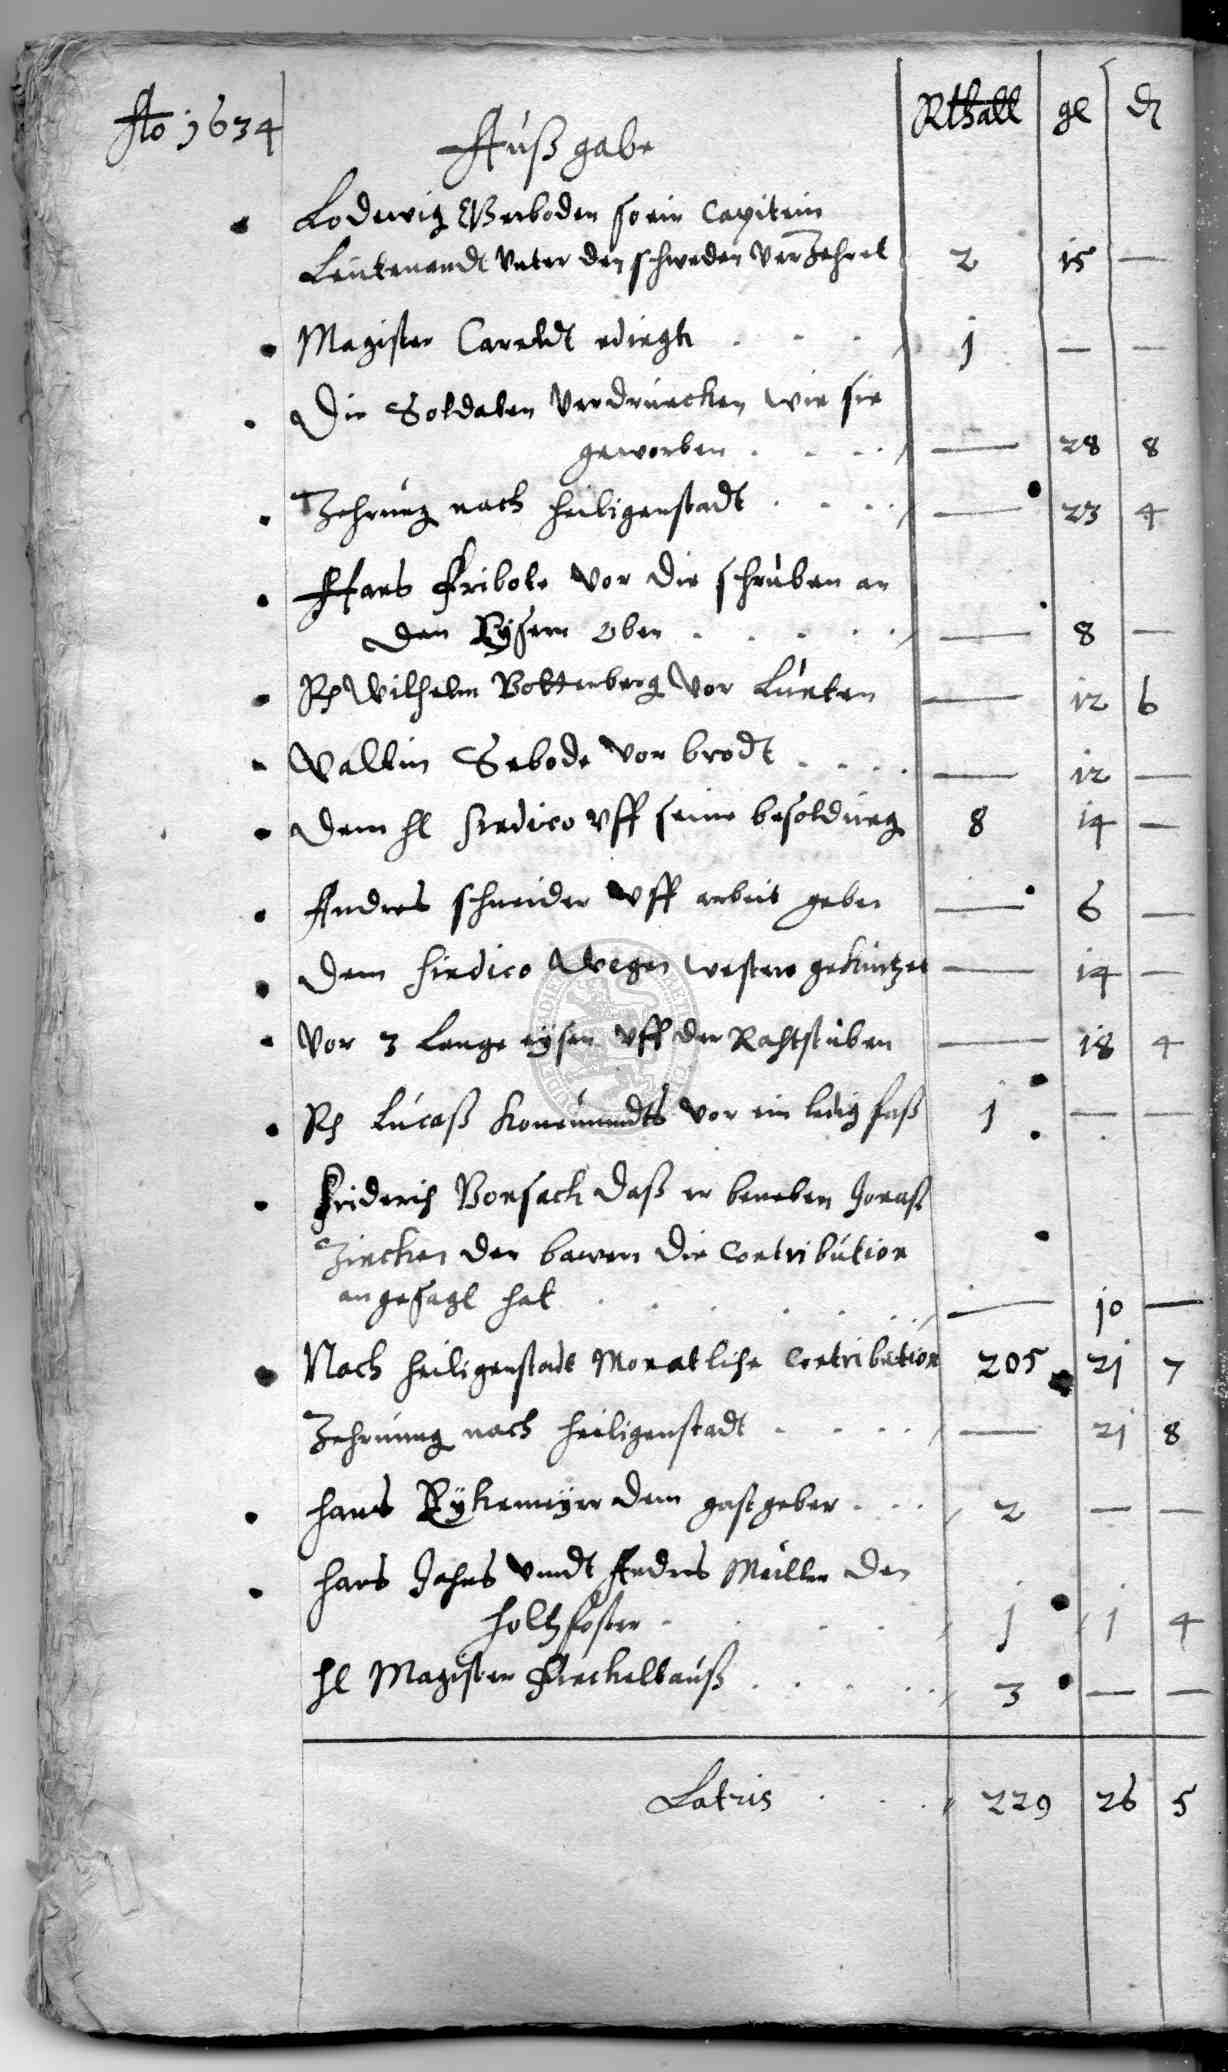 Ao 1634 Außgabe Rthall gl d
Lodewig Werboden so ein Capitein
Leutenandt unter den schweden verZehret 2 15 —
Magister Careldt . . . 1 — —
Die Soldaten verdruncken wie sie
geworben . . . . — 28 8
Zehrung nach heiligenstadt . . . . — 23 4
Hans Fribote vor die schruben an
den Eysern oben . . . . . — 8 —
Rh Wilhelm Bottenberg vor Lunten — 12 6
Valtin Sebode vor brodt . . . . — 12 —
Dem hl sindico uff seine besoldung 8 14 —
Andres schneider uff arbeit geben — 6 —
Dem sindico wegen — 14 —
Vor 3 Lange eysen uff der Rahtstuben — 18 4
Rh Lucaß vor ein ledig faß 1 — —
Friderich Bonsack daß er beneben Jonaß
Zincken den bawern die Contribution
angesagt hat . . . . . . — 10 —
Nach heiligenstadt Monatliche Contribution 205 21 7
Zehrung nach heiligenstadt . . . . — 21 8
hans Rykemeyer dem gastgeber . . . 2 — —
hans Jahns undt Andres Müller den
holtzfoster . . . . 1 1 4
hl Magister Finckeltauß . . . . . 3 — —
Latris . . . 229 26 5